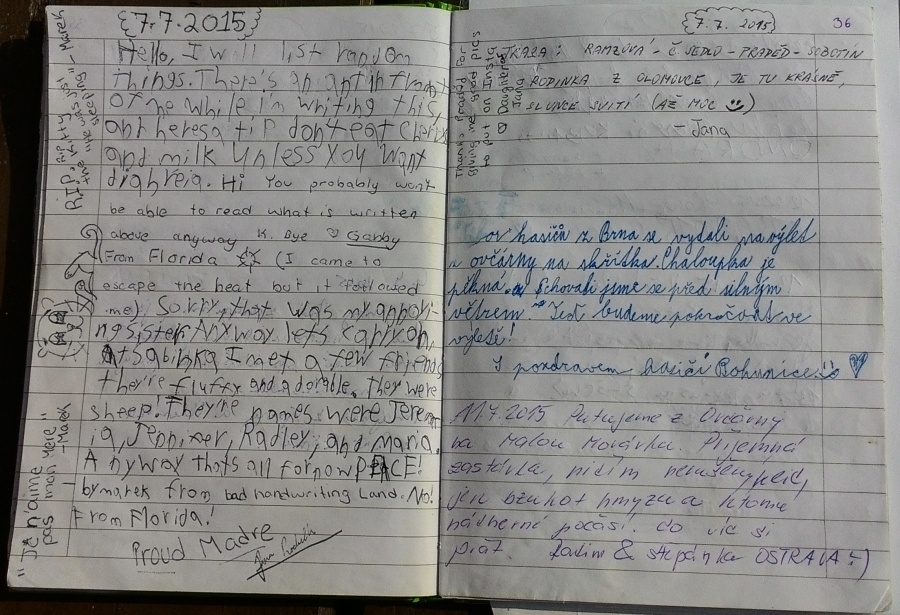 7.7.2015
Hello, I will list random
things. There's an ant in front
of me while I'm writing this,
and heres a tip don't eat
and milk unless you want
diahreia. Hi You probably won't
be able to read what is written
above anyway K. Bye ♡ Gabby
From Florida (I came to
escape the heat but it followed
me) Sorry, that was my annoy-
ing sister. Anyway lets carry on,
At sabinka I met a few friends
they're fluffy and adorable, they were
sheep. They're names were Jerem
ia, Jennifer, Radley, and Maria.
Anyway thats all for now PEACE!
by marek from bad handwriting Land. No!
From Florida!
Proud Madre
R.I.P. Kitty
RIP he was just
sleeping - Marek
"JE n'aime
pas mon frere"
-Marek
7.7.2015
36
Thanks Praděd for
giving me good pics
to put on Insta
♡ Daughter
Jana
TRASA: RAMZOVÁ - Č. SEDLO - PRADĚD - SOBOTÍN
RODINKA Z OLOMOUCE, JE TU KRÁSNĚ,
SLUNCE SVÍTÍ (AŽ MOC ☺)
- Jana
hasičů z Brna se vydali na výlet
z ovčárny na skřítka. Chaloupka je
pěkná. Schovali jsme se před silným
větrem. Teď budeme pokračovat ve
výletě!
S pozdravem hasiči Bohunice. ♡
11.7.2015 Putujeme z Ovčárny
na Malou Morávku. Příjemná
zastávka, nikým nerušený klid,
jen bzukot hmyzu a k tomu
nádherné počasí. Co víc si
přát. Radim & Štěpánka OSTRAVA :)